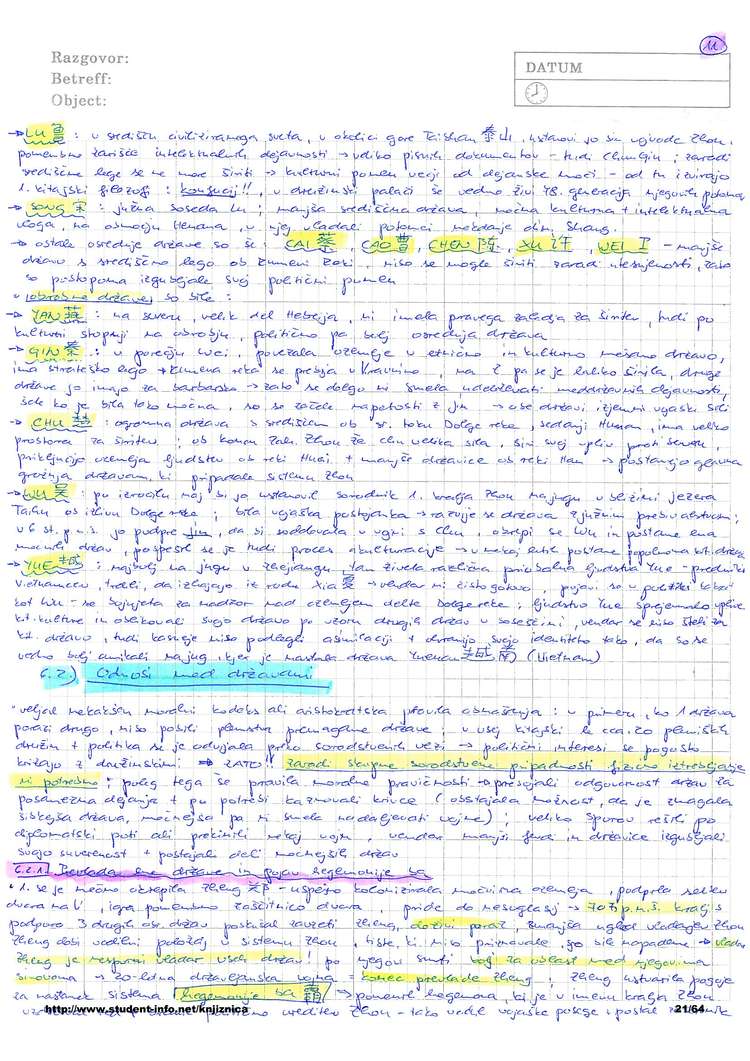 11
Razgovor:
Betreff:
Object:
DATUM
→ LU 魯 : v središču civiliziranega sveta, v okolici gore Taishan 泰山, ustanovi jo sin vojvode Zhou,
pomembno žarišče intelektualnih dejavnosti → veliko pisnih dokumentov - tudi Chunqiu ; zaradi
središčne lege se ne more širiti → kulturni pomen večji od dejanske moči - od tu izvirajo
1. kitajski filozofi : konfucij!!, v družinski palači še vedno živi 78. generacija njegovih potomcev
→ SONG 宋 : južna soseda Lu ; manjša središčna država, močna kulturna + intelektualna
vloga, na območju Henana, v njej vladali potomci nekdanje din. Shang.
→ ostale osrednje države so še : CAI 蔡, CAO 曹, CHEN 陈, XU 许, WEI 卫 - manjše
države s središčno lego ob Rumeni reki, niso se mogle širiti zaradi utesnjenosti, zato
so postopoma izgubljale svoj politični pomen
obrobne države so bile :
→ YAN 燕 : na severu, velik del Hebeija, ni imela pravega zaledja za širitev, tudi po
kulturni stopnji na obrobju, politično pa bolj osrednja država
→ QIN 秦 : v porečju Wei, povezala ozemlje v etnično in kulturno mešano državo,
ima strateško lego → Rumena reka se prebija v ravnino, na Z pa se je lahko širila, druge
države jo imajo za barbarsko → zato se dolgo ni smela udeleževati meddržavnih dejavnosti,
šele ko je bila tako močna, so se začele napetosti z Jin → obe državi izjemni vojaški sili
→ CHU 楚 : ogromna država s središčem ob sr. toku Dolge reke, sedanji Hunan, ima veliko
prostora za širitev ; ob koncu Zah. Zhou že zelo velika sila, širi svoj vpliv proti severu,
priključijo ozemlja ljudstev ob reki Huai, + manjše državice ob reki Han → postanejo glavna
grožnja državam, ki pripadale sistemu Zhou
→ WU 吴 : po izročilu naj bi jo ustanovil sorodnik 1. kralja Zhou na jugu v bližini jezera
Taihu ob izlivu Dolge reke ; bila vojaška postojanka → razvije se država z južnim prebivalstvom ;
v 6. st. p.n.š. jo podpre Jin, da bi sodelovala v vojni s Chu, okrepi se Wu in postane ena
močnejših držav, pospeši se je tudi proces akulturacije → v nekaj letih postane popolnoma kit. država
→ YUE 越 : najbolj na jugu v Zhejiangu, tam živela različna priobalna ljudstva Yue - predniki
Vietnamcev, trdili, da izhajajo iz rodu Xia 夏 → vendar ni čisto gotovo, pojavi se v politiki kasneje
kot Wu - se bojujeta za nadzor nad ozemljem delte Dolge reke ; ljudstvo Yue sprejemalo vplive
kit. kulture in oblikovali svojo državo po vzoru drugih držav v soseščini, vendar se niso šteli za
kit. državo, tudi kasneje niso podlegli asimilaciji + ohranijo svojo identiteto tako, da so se
vedno bolj umikali na jug, kjer je nastala država Yuenan 越南 (Vietnam)
6.2.) Odnosi med državami
veljal nekakšen moralni kodeks ali aristokratska pravila obnašanja : v primeru, ko 1 država
porazi drugo, niso pobili plemstva premagane države ; v vsej kitajski le cca. 20 plemiških
družin + politika se je odvijala preko sorodstvenih vezi → politični interesi se pogosto
križajo z družinskimi ⇒ ZATO!! zaradi skupne sorodstvene pripadnosti fizično iztrebljanje
ni potrebno ; poleg tega še pravila moralne pravičnosti → presojali odgovornost držav za
posamezna dejanja + po potrebi kaznovali krivce (obstajala možnost, da je zmagala
šibkejša država, močnejša pa ni smela nadaljevati vojne) ; veliko sporov rešili po
diplomatski poti ali prekinili nekaj vojn, vendar manjši fevdi in državice izgubljali
svojo suverenost + postajali deli močnejših držav
6.2.1. Prevlada ene države in pojav hegemonije ba
1. se je močno okrepila Zheng 郑 - uspešno kolonizirala močvirna ozemlja, podprla selitev
dvora na V, igra pomembno zaščitnico dvora, pride do nesoglasij → 707 p.n.š. kralj s
podporo 3 drugih os. držav poskušal zavzeti Zheng, doživi poraz, zmanjša ugled vladarjev Zhou
Zheng dobi vodilni položaj v sistemu Zhou, tiste, ki niso priznavale, so bile napadene → vladar
Zheng je neuradni vladar vseh držav! po njegovi smrti boj za oblast med njegovima
sinovoma → 20-letna državljanska vojna = konec prevlade Zheng ; Zheng ustvarila pogoje
za nastanek sistema hegemonije ba 霸 → pomeni hegemona, ki je v imenu kralja Zhou
Zhou - tako vodil vojaške posege + postal
http://www.student-info.net/knjiznica
21/64